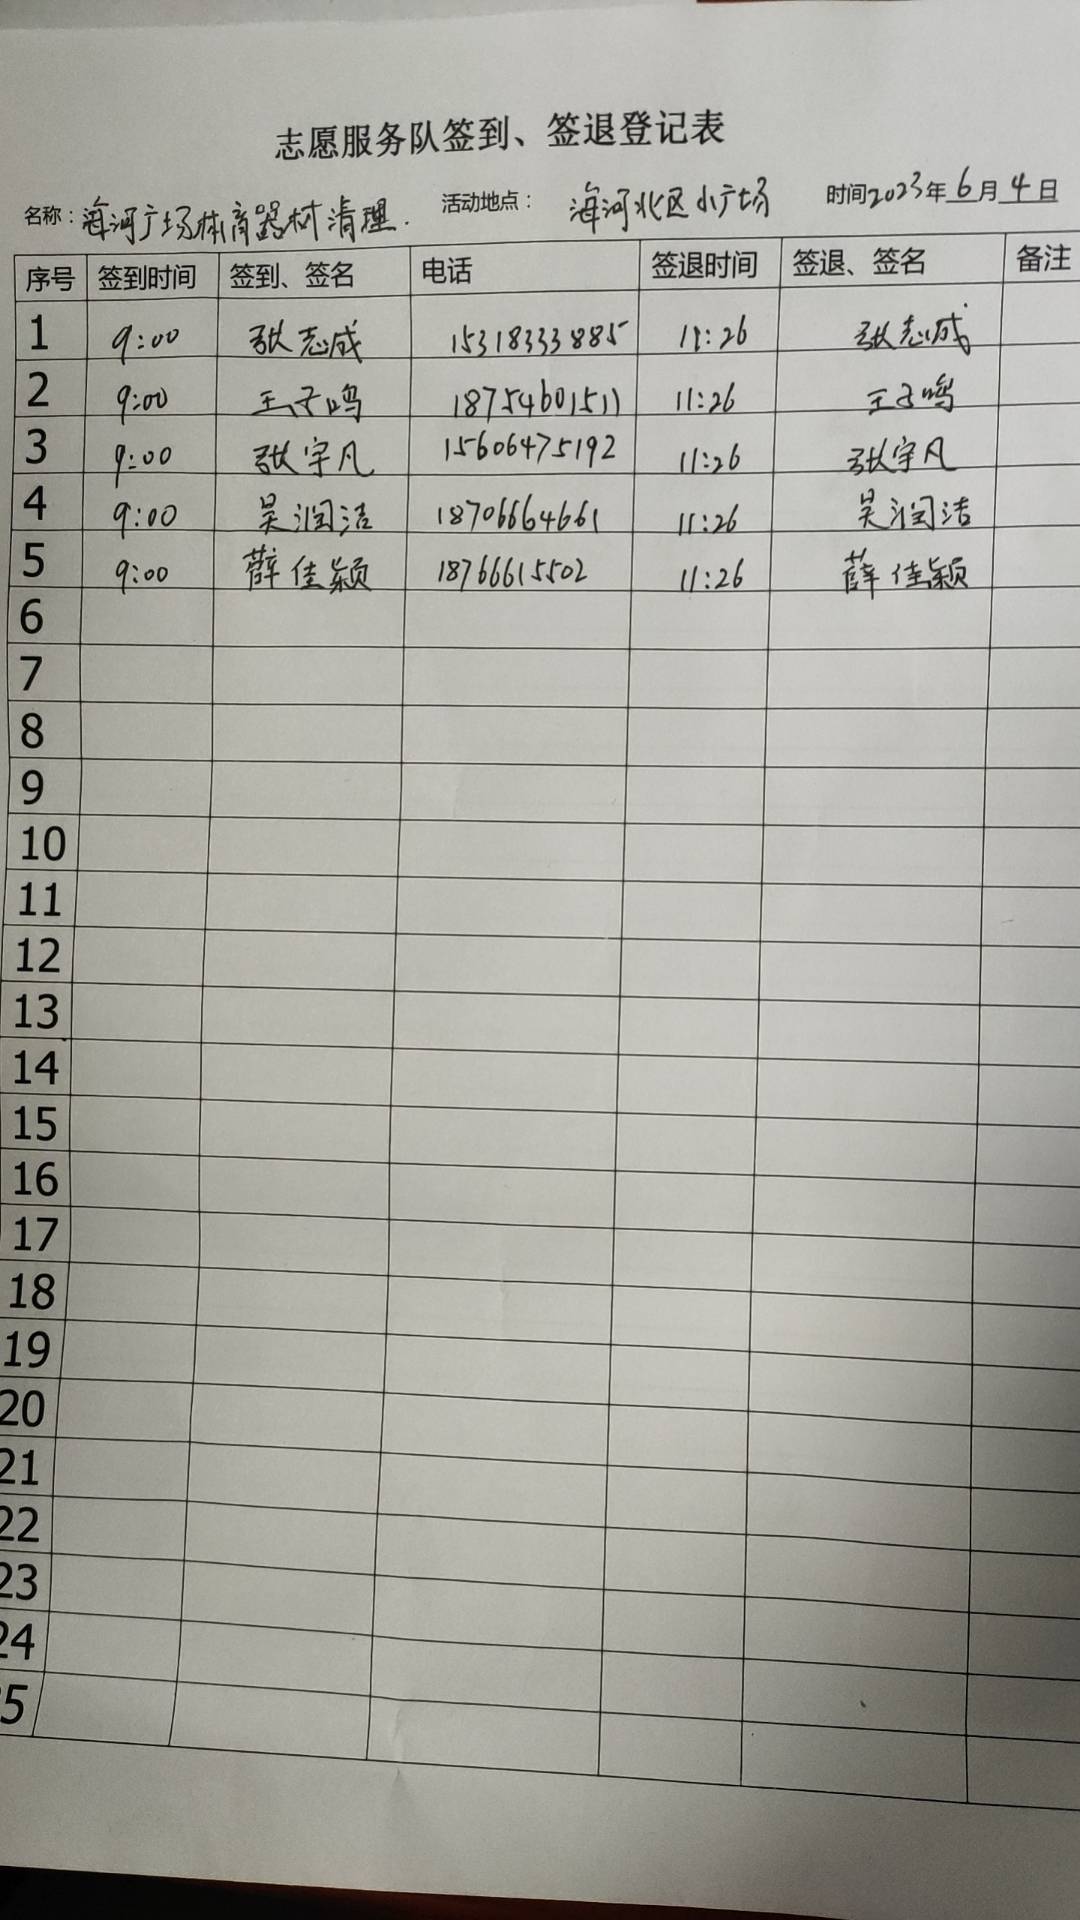 志愿服务队签到、签退登记表
名称：海河广场体育器材清理. 活动地点： 海河北区小广场 时间2023年6月4日
序号 签到时间 签到、签名 电话 签退时间 签退、签名 备注
1 9:00 张志成 15318333885 11:26 张志成
2 9:00 王子鸣 18754601511 11:26 王子鸣
3 9:00 张宇凡 15606475192 11:26 张宇凡
4 9:00 吴润洁 18706664661 11:26 吴润洁
5 9:00 薛佳颖 18766615502 11:26 薛佳颖
6
7
8
9
10
11
12
13
14
15
16
17
18
19
20
21
22
23
24
5